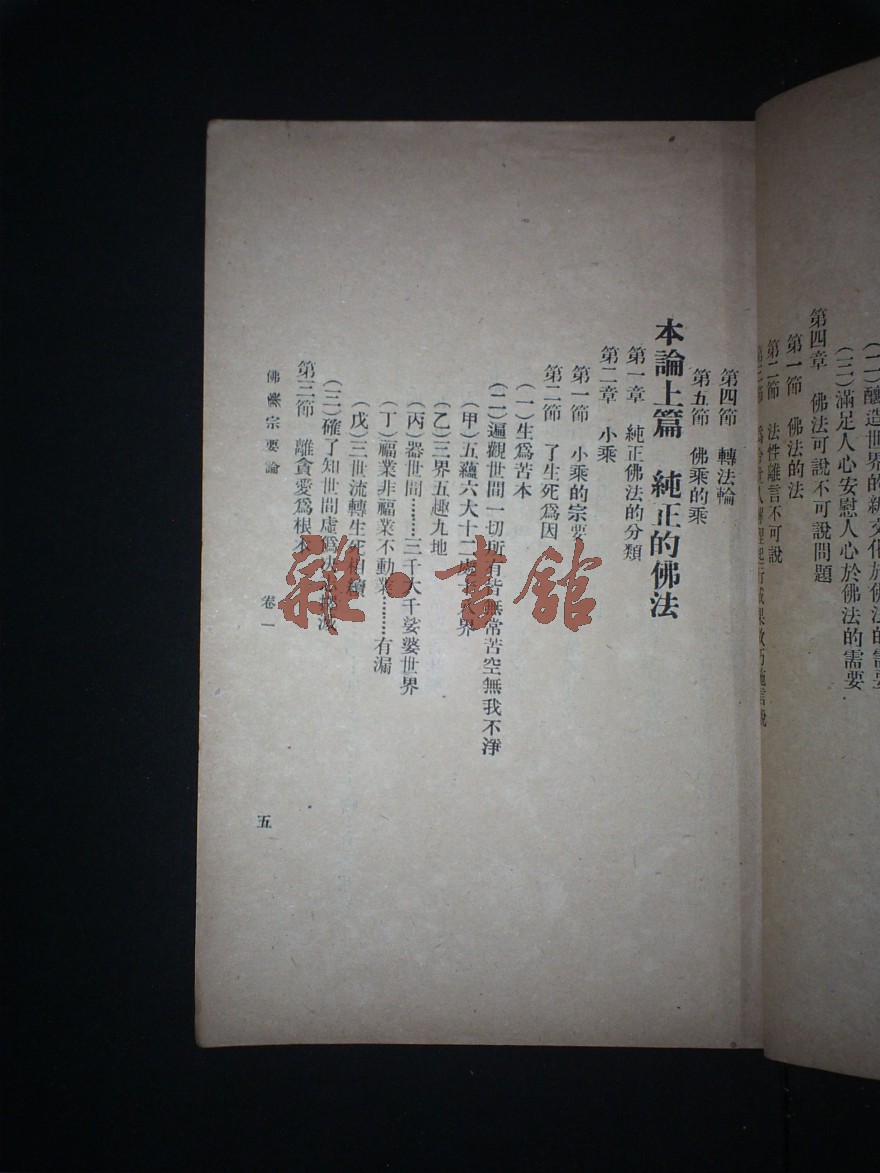 (二)釀造世界的新文化於佛法的需要
(三)滿足人心安慰人心於佛法的需要
第四章 佛法可說不可說問題
第一節 佛法的法
第二節 法性離言不可說
第四節 轉法輪
第五節 佛乘的乘
本論上篇 純正的佛法
第一章 純正佛法的分類
第二章 小乘
第一節 小乘的宗要
第二節 了生死爲因
(一)生爲苦本
(二)遍觀世間一切所有皆無常苦空無我不淨
(甲)五蘊六大十二處 界
(乙)三界五趣九地
(丙)器世間………三千大千娑婆世界
(丁)福業非福業不動業………有漏
(戊)三世流轉生死相續
(三)確了知世間虛僞
第三節 離貪愛爲根本
佛乘宗要論 卷一
五
雜·書館